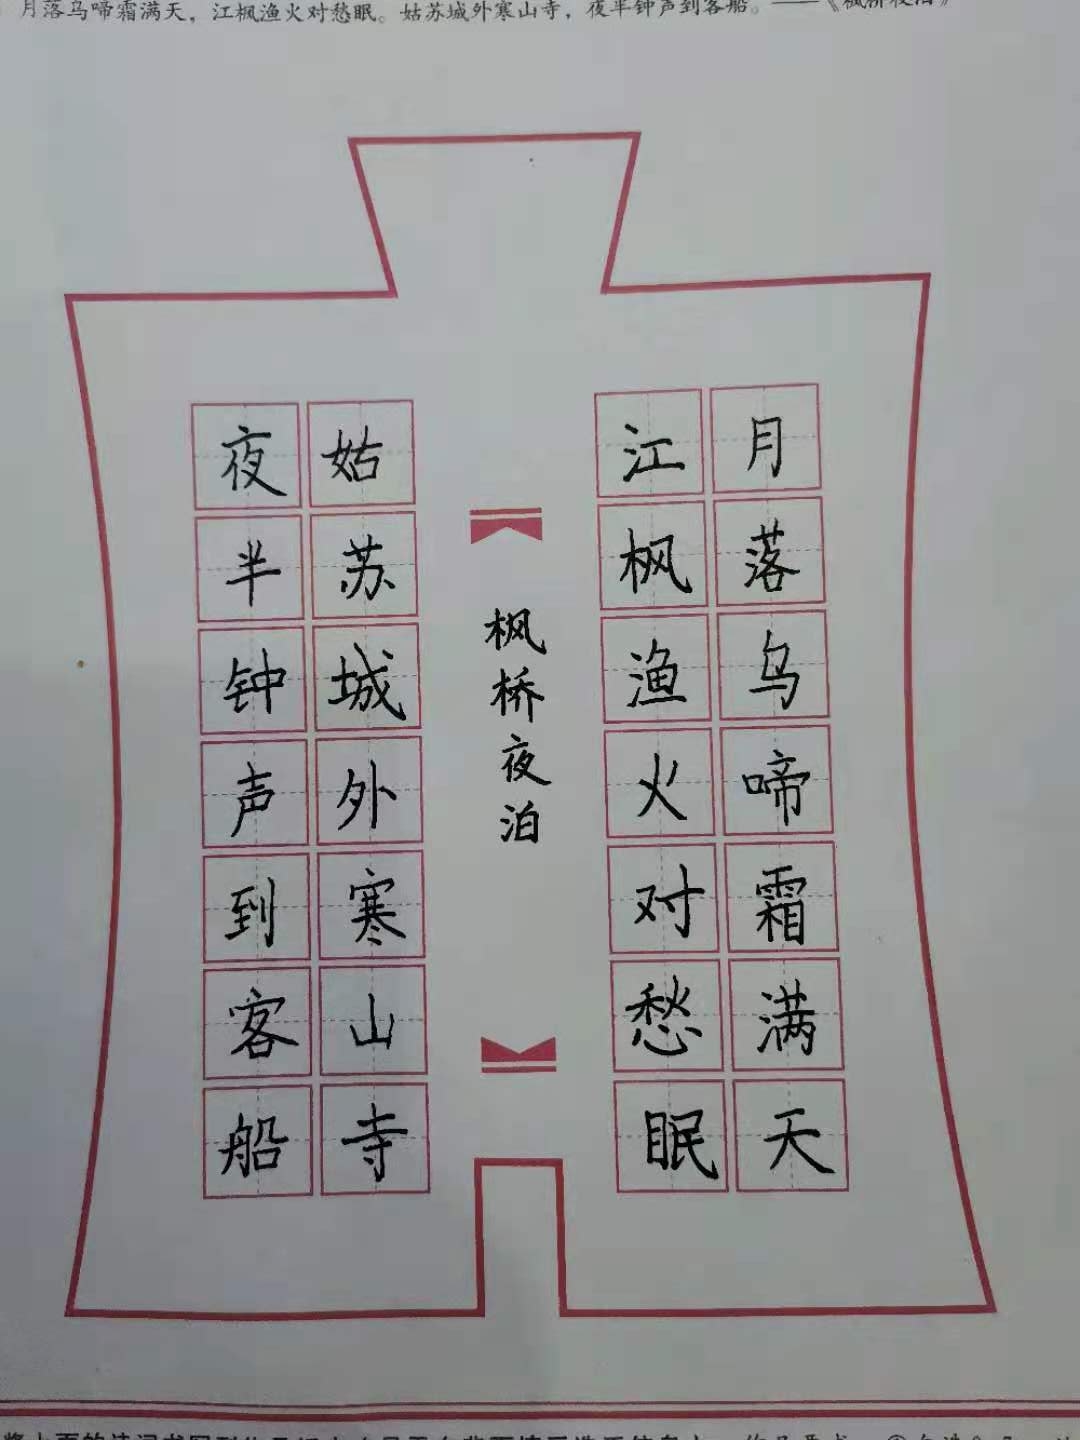 月落乌啼霜满天，江枫渔火对愁眠。姑苏城外寒山寺，夜半钟声到客船。——《枫桥夜泊》
月落乌啼霜满天
江枫渔火对愁眠
枫桥夜泊
姑苏城外寒山寺
夜半钟声到客船